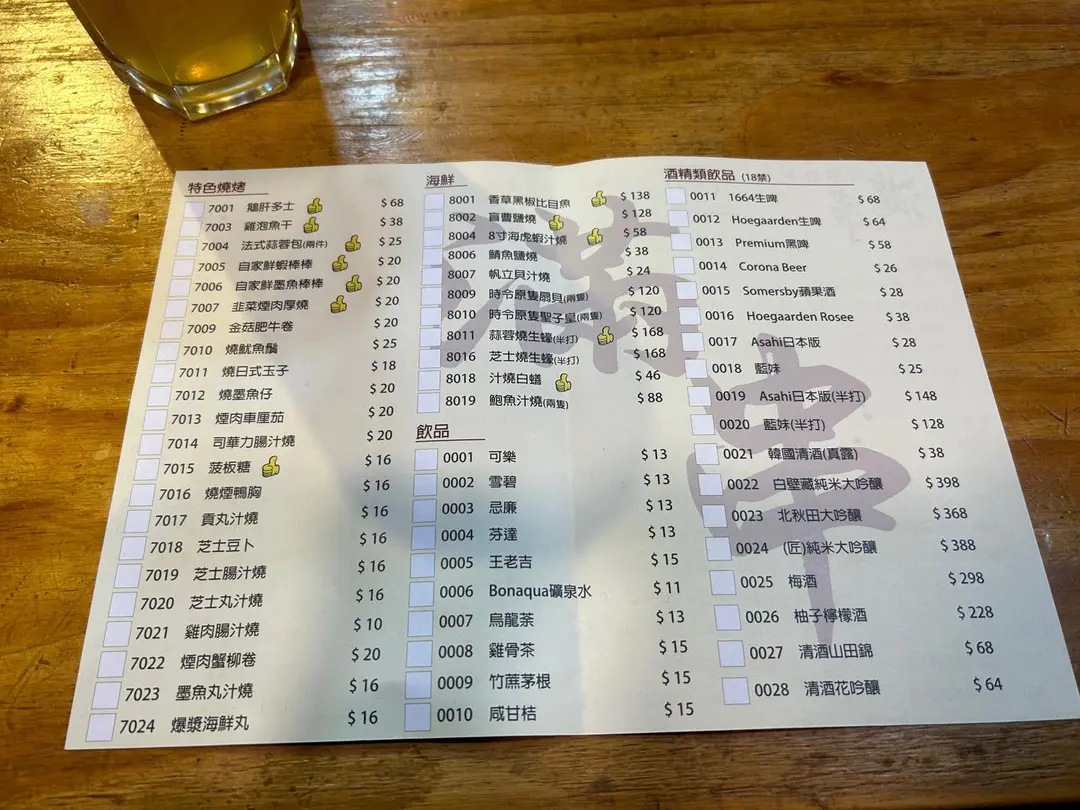 特色燒烤
7001 鵝肝多士 $ 68
7003 雞泡魚干 $ 38
7004 法式蒜蓉包(兩件) $ 25
7005 自家鮮蝦棒棒 $ 20
7006 自家鮮墨魚棒棒 $ 20
7007 韭菜煙肉厚燒 $ 20
7009 金菇肥牛卷 $ 20
7010 燒魷魚鬚 $ 25
7011 燒日式玉子 $ 18
7012 燒墨魚仔 $ 20
7013 煙肉車厘茄 $ 20
7014 司華力腸汁燒 $ 20
7015 菠板糖 $ 16
7016 燒煙鴨胸 $ 16
7017 貢丸汁燒 $ 16
7018 芝士豆卜 $ 16
7019 芝士腸汁燒 $ 16
7020 芝士丸汁燒 $ 16
7021 雞肉腸汁燒 $ 10
7022 煙肉蟹柳卷 $ 20
7023 墨魚丸汁燒 $ 16
7024 爆漿海鮮丸 $ 16
海鮮
8001 香草黑椒比目魚 $ 138
8002 盲曹鹽燒 $ 128
8004 8寸海虎蝦汁燒 $ 58
8006 鯖魚鹽燒 $ 38
8007 帆立貝汁燒 $ 24
8009 時令原隻扇貝(兩隻) $ 120
8010 時令原隻聖子皇(兩隻) $ 120
8011 蒜蓉燒生蠔(半打) $ 168
8016 芝士燒生蠔(半打) $ 168
8018 汁燒白鱔 $ 46
8019 鮑魚汁燒(兩隻) $ 88
飲品
0001 可樂 $ 13
0002 雪碧 $ 13
0003 忌廉 $ 13
0004 芬達 $ 13
0005 王老吉 $ 15
0006 Bonaqua礦泉水 $ 11
0007 烏龍茶 $ 13
0008 雞骨茶 $ 15
0009 竹蔗茅根 $ 15
0010 咸甘桔 $ 15
酒精類飲品 (18禁)
0011 1664生啤 $ 68
0012 Hoegaarden生啤 $ 64
0013 Premium黑啤 $ 58
0014 Corona Beer $ 26
0015 Somersby蘋果酒 $ 28
0016 Hoegaarden Rosee $ 38
0017 Asahi日本版 $ 28
0018 藍妹 $ 25
0019 Asahi日本版(半打) $ 148
0020 藍妹(半打) $ 128
0021 韓國清酒(真露) $ 38
0022 白壁藏純米大吟釀 $ 398
0023 北秋田大吟釀 $ 368
0024 (匠)純米大吟釀 $ 388
0025 梅酒 $ 298
0026 柚子檸檬酒 $ 228
0027 清酒山田錦 $ 68
0028 清酒花吟釀 $ 64